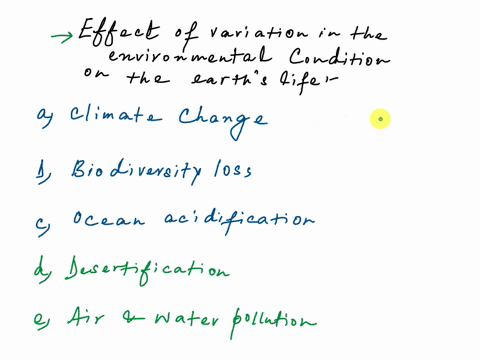 → Effect of variation in the
environmental Condition
on the earth's life:-
a, Climate Change
b, Biodiversity loss
c, Ocean acidification
d, Desertification
e, Air & Water pollution